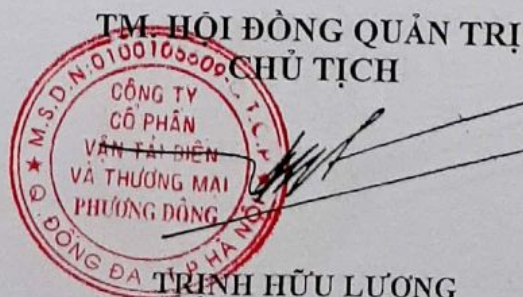 TM. HỘI ĐỒNG QUẢN TRỊ
CHỦ TỊCH
C.T.C.P
CÔNG TY
CỔ PHẦN
VẬN TẢI BIỂN
VÀ THƯƠNG MẠI
PHƯƠNG ĐÔNG
Q. ĐỐNG ĐA - T.P HÀ NỘI
TRỊNH HỮU LƯƠNG